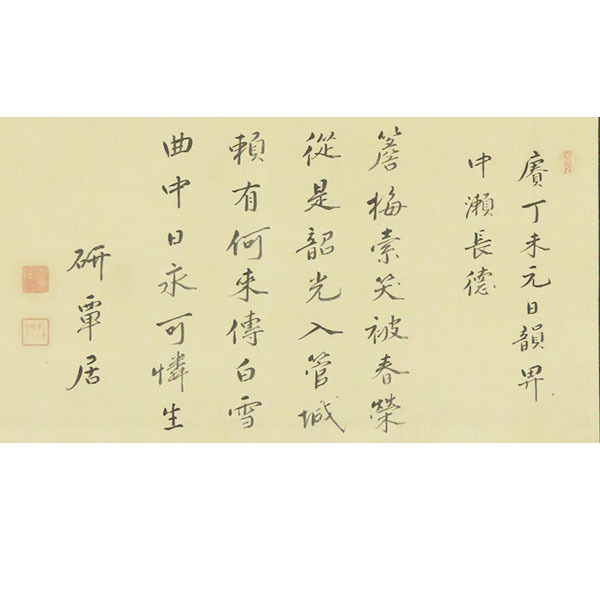 賡丁未元日韻畀
中瀬長德
簷梅索笑被春榮
從是韶光入管城
頼有何來傳白雪
曲中日永可憐生
研覃居